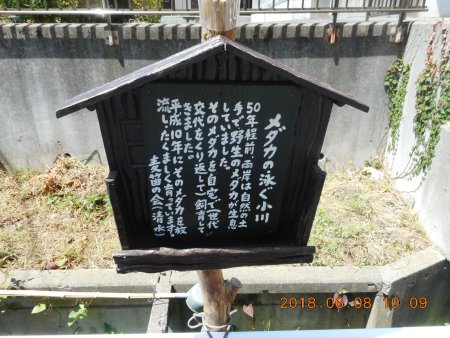 メダカの泳ぐ小川
50年程前、両岸は自然の土
手で野生のメダカが生息
していました。
そのメダカを自宅で世代
交代をくり返して飼育して
きました。
平成10年にそのメダカを放
流したくましく育っています。
麦笛の会(清水)
2018 06 08 10:09